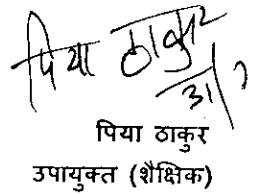 पिया ठाकुर
पिया ठाकुर
उपायुक्त (शैक्षिक)